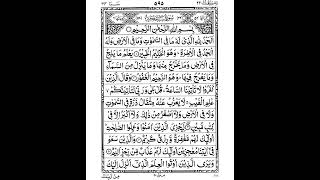 ۵۹۵
بِسْمِ اللهِ الرَّحْمٰنِ الرَّحِيْمِ
اَلْحَمْدُ لِلّٰهِ الَّذِيْ لَهٗ مَا فِي السَّمٰوٰتِ وَمَا فِي الْاَرْضِ وَلَهُ
الْحَمْدُ فِي الْاٰخِرَةِ وَهُوَ الْحَكِيْمُ الْخَبِيْرُ يَعْلَمُ مَا يَلِجُ
فِي الْاَرْضِ وَمَا يَخْرُجُ مِنْهَا وَمَا يَنْزِلُ مِنَ السَّمَآءِ
وَمَا يَعْرُجُ فِيْهَا وَهُوَ الرَّحِيْمُ الْغَفُوْرُ وَقَالَ الَّذِيْنَ
كَفَرُوْا لَا تَاْتِيْنَا السَّاعَةُ قُلْ بَلٰى وَرَبِّيْ لَتَاْتِيَنَّكُمْ
عٰلِمِ الْغَيْبِ لَا يَعْزُبُ عَنْهُ مِثْقَالُ ذَرَّةٍ فِي السَّمٰوٰتِ
وَلَا فِي الْاَرْضِ وَلَآ اَصْغَرُ مِنْ ذٰلِكَ وَلَآ اَكْبَرُ اِلَّا فِيْ
كِتٰبٍ مُّبِيْنٍ لِّيَجْزِيَ الَّذِيْنَ اٰمَنُوْا وَعَمِلُوا الصّٰلِحٰتِ
اُولٰٓئِكَ لَهُمْ مَّغْفِرَةٌ وَّرِزْقٌ كَرِيْمٌ وَالَّذِيْنَ سَعَوْ
فِيْٓ اٰيٰتِنَا مُعٰجِزِيْنَ اُولٰٓئِكَ لَهُمْ عَذَابٌ مِّنْ رِّجْزٍ اَلِيْمٌ
وَيَرَى الَّذِيْنَ اُوْتُوا الْعِلْمَ الَّذِيْٓ اُنْزِلَ اِلَيْكَ